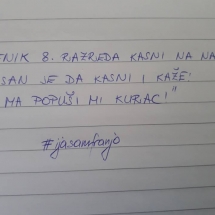 TNIK 8. RAZREDA KASNI NA NA
SAN JE DA KASNI I KAŽE:
MA POPUŠI MI KURAC!"
#ijasamfranjo